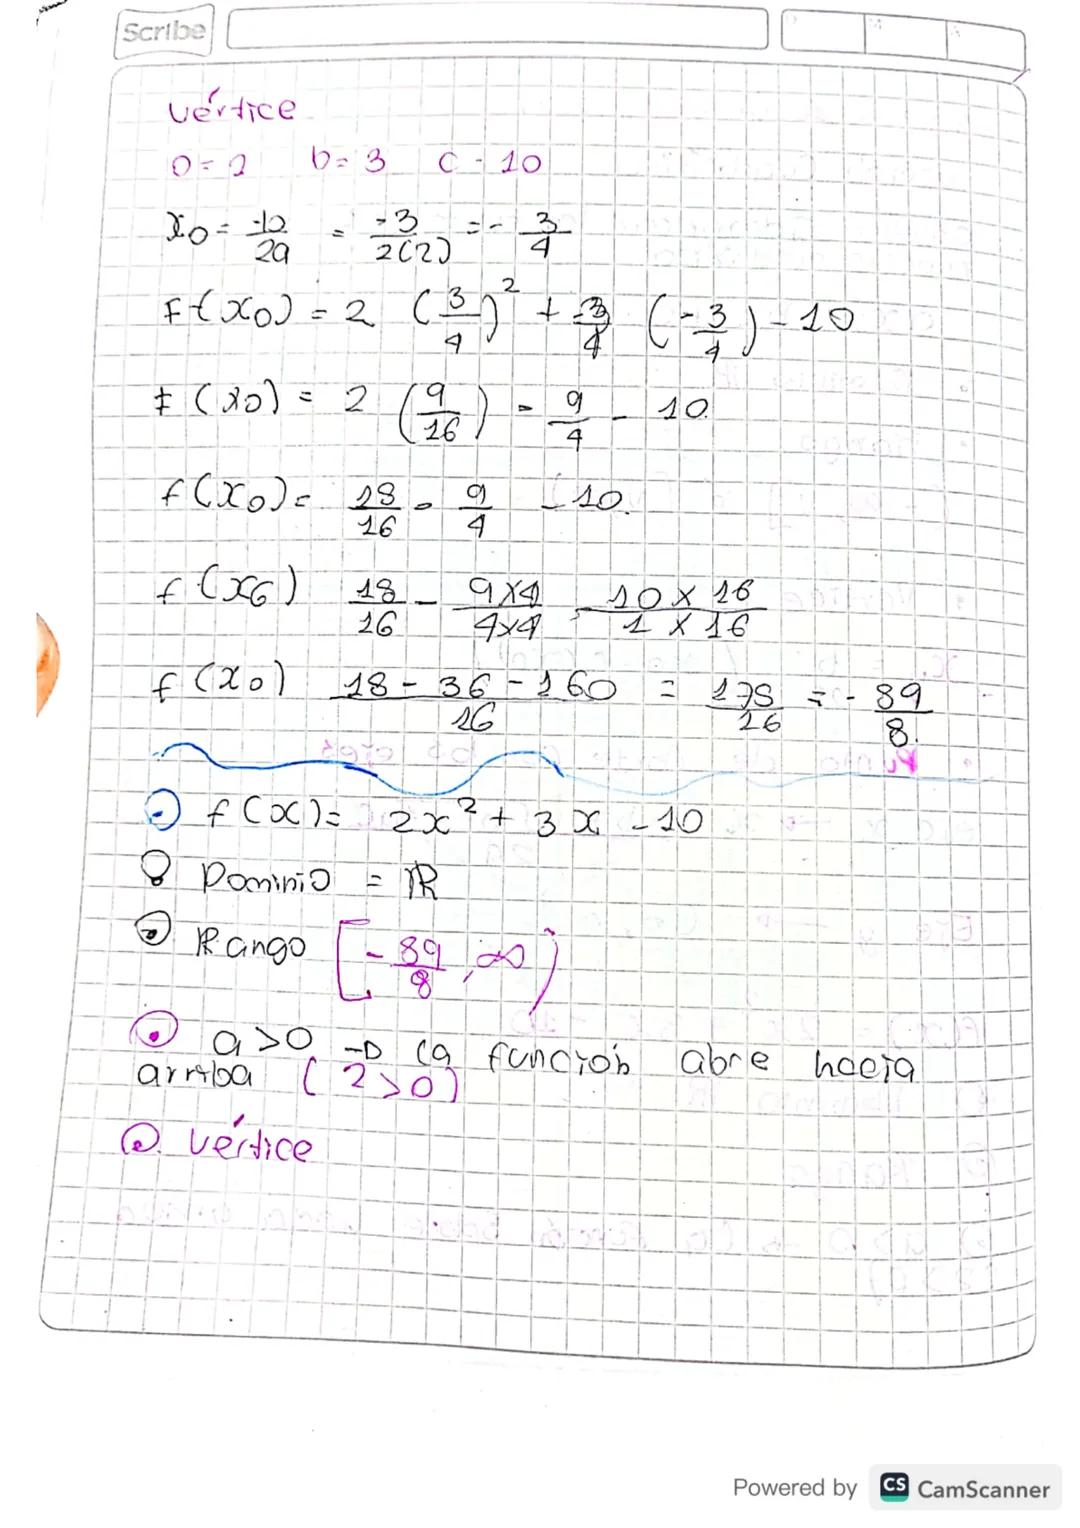 Scribe
vértice
a = 2 b = 3 c - 10
x0 = -b/2a = -3/2(2) = - 3/4
F(x0) = 2 (3/4)² + 3/4 (-3/4) - 10
f(x0) = 2 (9/16) - 9/4 - 10.
f(x0) = 18/16 - 9/4 - 10.
f(x0) 18/16 - 9x4/4x4 - 10 x 16/1 x 16
f(x0) 18 - 36 - 160/16 = 178/16 = - 89/8.
f(x) = 2x² + 3x - 10
Dominio = ℝ
Rango [- 89/8, ∞)
a > 0 → la función abre hacia
arriba (2 > 0)
vértice
Powered by CS CamScanner